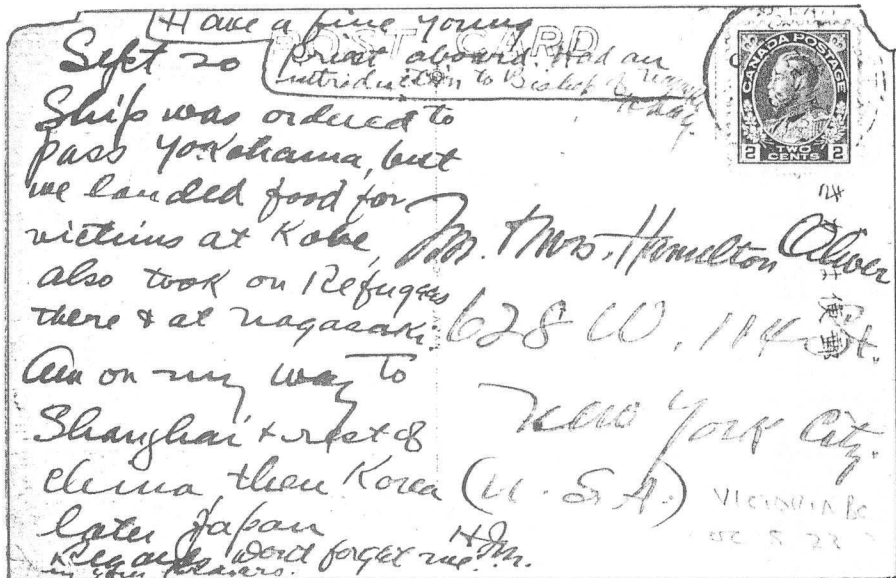 Have a fine young
priest aboard. Had an
introduction to Bishop of
today.
POST CARD
Sept 20
Ship was ordered to
pass Yokohama, but
we landed food for
victims at Kobe,
also took on Refugees
there & at Nagasaki.
Am on my way to
Shanghai & rest of
China, then Korea
later Japan
Regards, dont forget me
in your prayers.
H.M.
CANADA POSTAGE
2 TWO CENTS 2
Mr. & Mrs. Hamilton Oliver
628 W. 114 St.
New York City.
(U.S.A.)
便郵